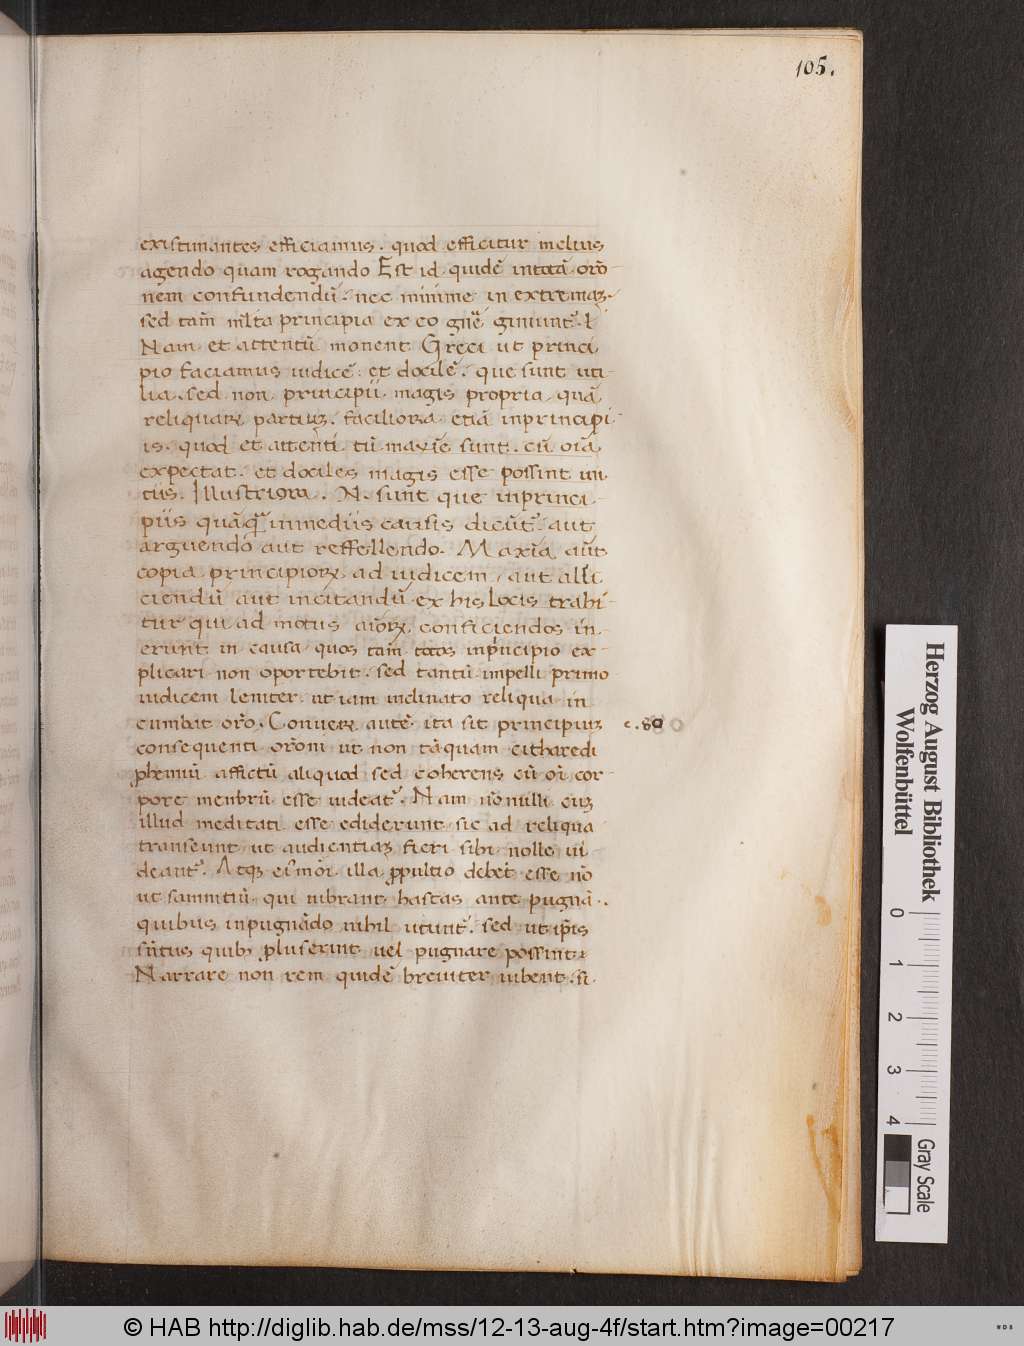 105.
existimantes efficiamus. quod efficitur melius
agendo quam rogando Est id quidē intotā orō
nem confundendū. nec minime in extremaꝫ.
sed tam̄ mlta principia ex eo gn̄e giniunt̄.
Nam et attentū monent Greci ut princi
pio faciamus iudicē. et docilē. que sunt uti
lia. sed non principii magis propria quā
reliquaꝝ partiuꝫ. faciliora etiā inprincipi
is. quod et attenti tū maxīe sunt. cū oīa
expectat. et dociles magis esse possint ini
tiis. Illustriora. N. sunt que inprinci
piis quāq̄ inmediis causis dicūt̄. aut
arguendo aut reffellendo. Maxīa aūt
copia principioꝝ ad iudicem aut alli
ciendū aut incitandū ex his locis trahi
tur qui ad motus aīoꝝ conficiendos in
erunt in causa quos tam̄ totos inp̄ncipio ex
plicari non oportebit. sed tantū impelli primo
iudicem leniter ut iam inclinato reliqua in
cumbat orō. Conuerꝫ autē ita sit principiuꝫ c. 80
consequenti orōni ut non tāquam citharedi
ꝓhemiū affictū aliquod sed coherens cū oī cor
pore menbrū esse uideat̄. Nam nōnulli cuꝫ
illud meditati esse ediderunt sic ad reliqua
transeunt ut audientiaꝫ fieri sibi nolle ui
deant̄. Atqꝫ ei᷒moī illa ꝓpultio debet esse nō
ut samnitiū qui uibrant hastas ante pugnā.
quibus inpugnādo nihil utunt̄. sed ut ip̄is
sn̄tus quibꝫ ꝓluserint uel pugnare possint
Narrare non rem quidē breuiter iubent. si
Herzog August Bibliothek
Wolfenbüttel
0 1 2 3 4
Gray Scale
© HAB http://diglib.hab.de/mss/12-13-aug-4f/start.htm?image=00217